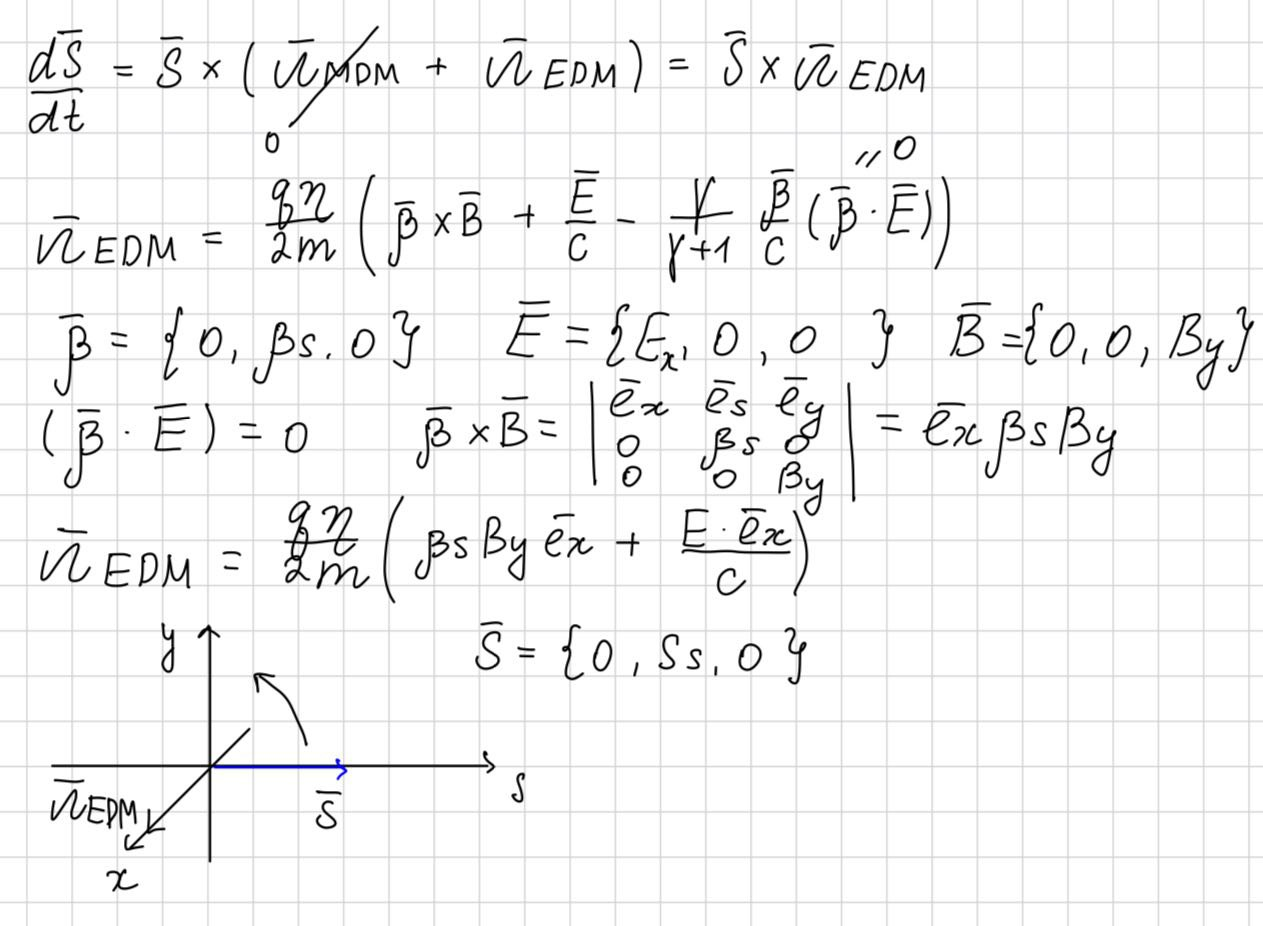 dS̄/dt = S̄ × (Ω̄MDM + Ω̄EDM) = S̄ × Ω̄EDM
0
" 0
Ω̄EDM = qη/2m (β̄ × B̄ + Ē/c − γ/γ+1 β̄/c (β̄ · Ē))
β̄ = {0, βs, 0} Ē = {Ex, 0, 0 } B̄ = {0, 0, By}
(β̄ · Ē) = 0 β̄ × B̄ = | ēx ēs ēy ; 0 βs 0 ; 0 0 By | = ēx βs By
Ω̄EDM = qη/2m (βs By ēx + E · ēx/c)
y S̄ = {0, Ss, 0}
s
Ω̄EDM S̄
x